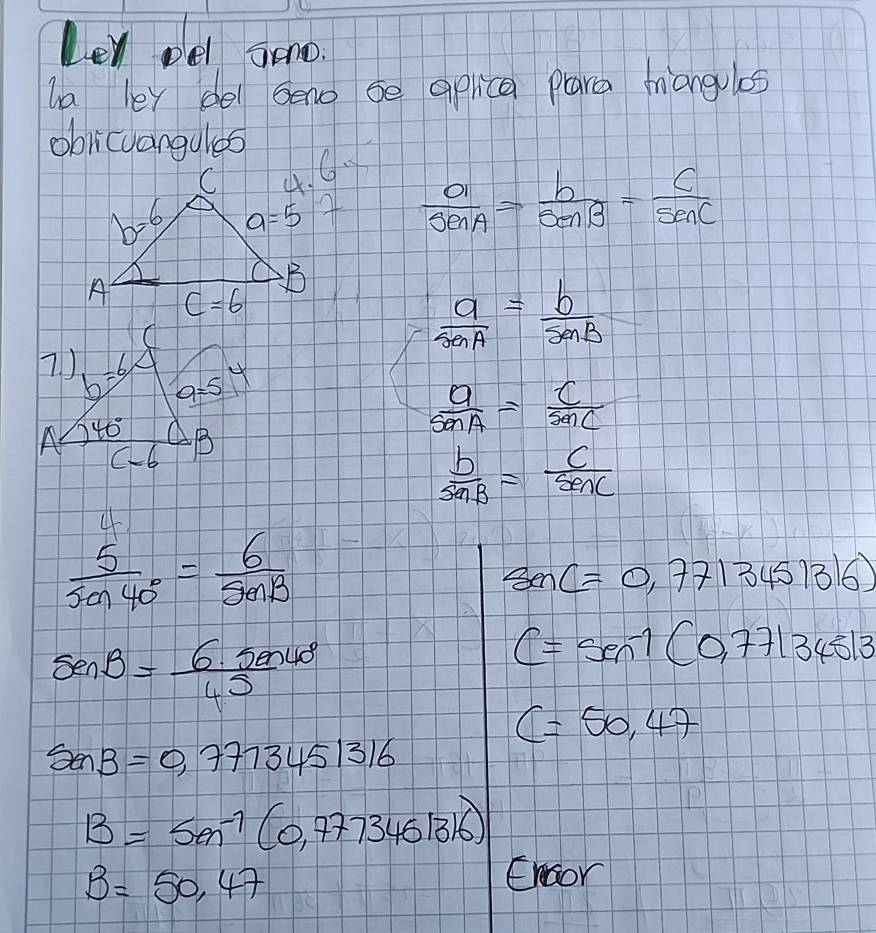 Ley del seno.
La ley del seno se aplica para triangulos
oblicuangulos
C 4.6
b=6 a=5 7
A B
C=6
a/senA = b/senB = c/senC
a/senA = b/senB
a/senA = c/senC
b/senB = c/senC
1.) C
b=6 a=5 4
A 40° B
C=6
4
5/sen 40° = 6/senB
senB = 6. sen40/4.5
senB = 0,7713451316
B = sen⁻¹ (0,7713451316)
B = 50,47
senC = 0,7713451316)
C = sen⁻¹ (0,77134513
C = 50,47
Error